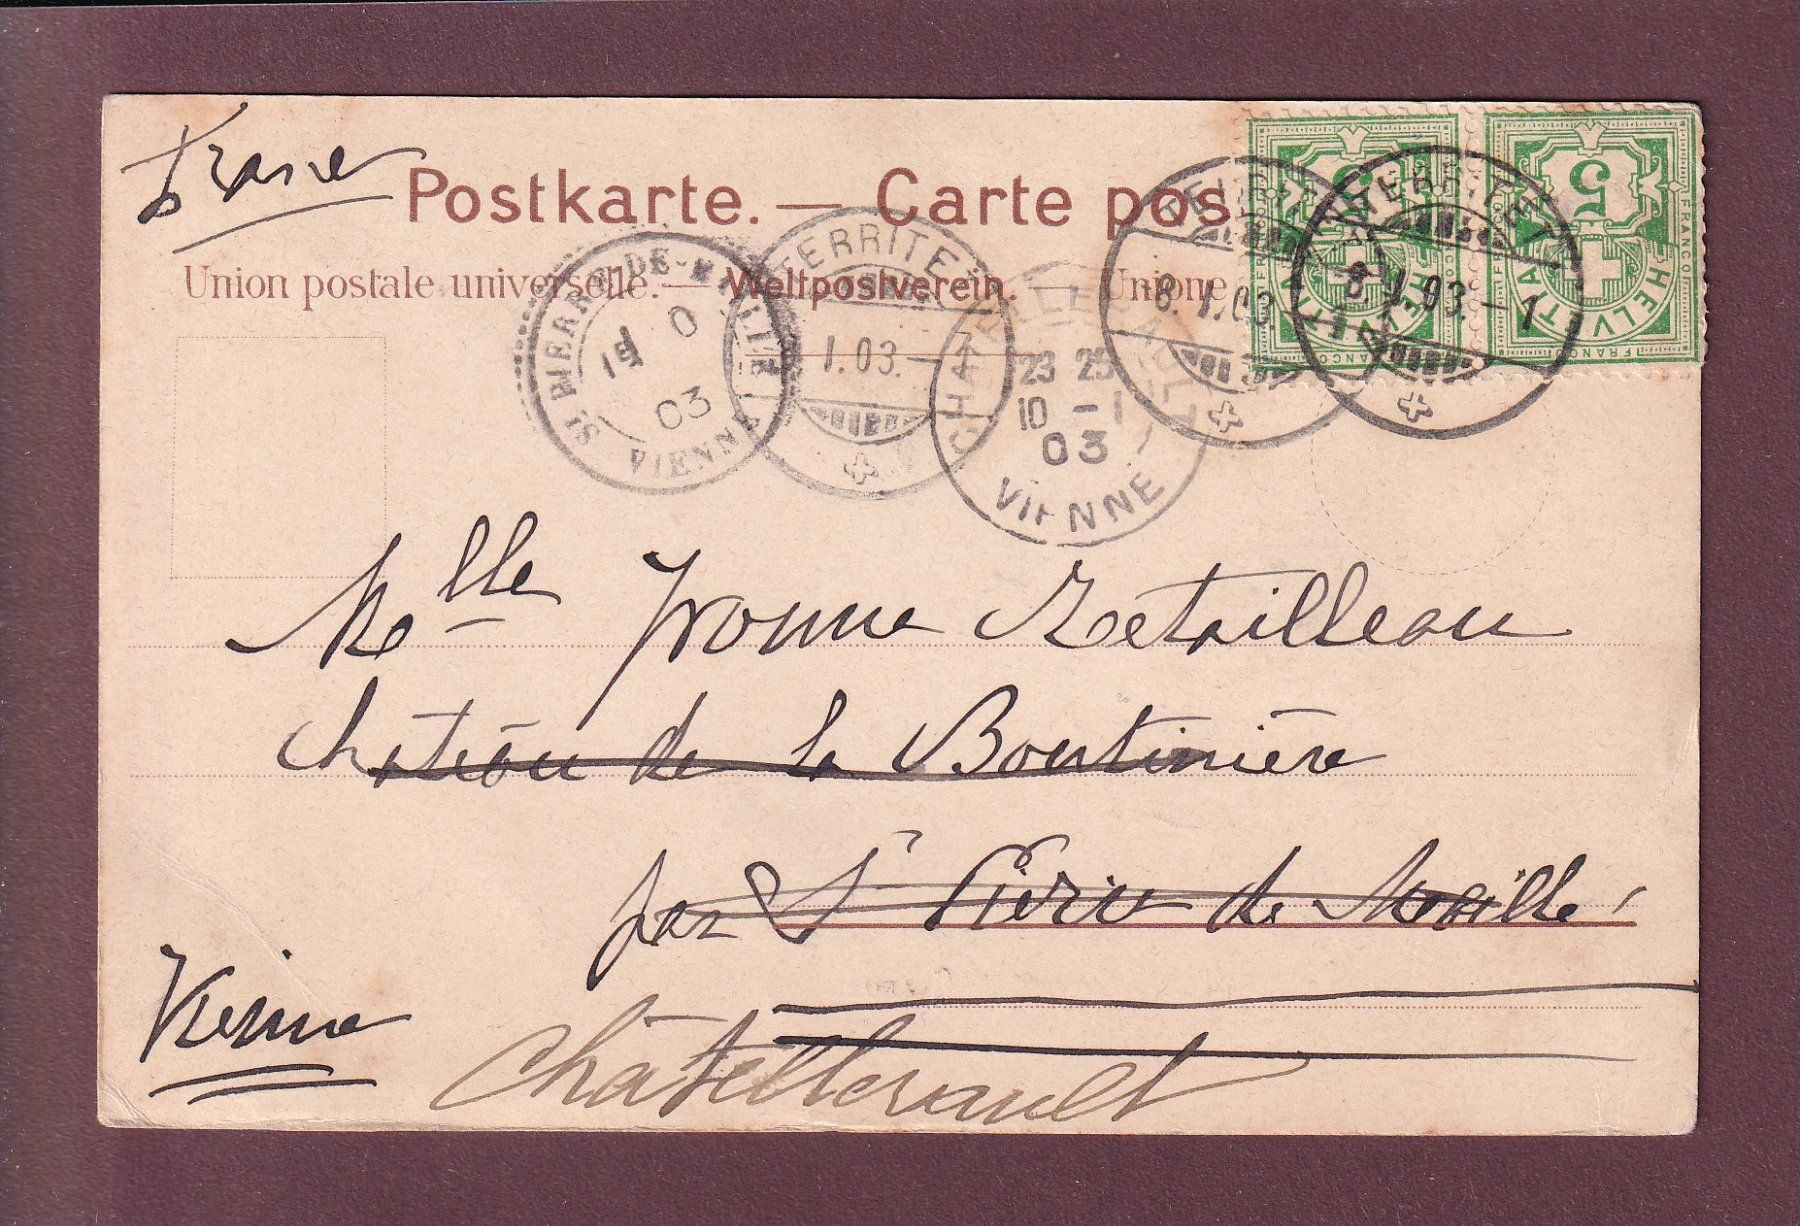 France
Postkarte. — Carte pos
Union postale universelle. — Weltpostverein. — Unione
5 FRANCO HELVETIA FRANCO
TERRITET 8.I.03.-1
TERRITET 8.I.03.-1
TERRITET I.03.-
ST PIERRE-DE-MAILLÉ 03 VIENNE
CHATELLERAULT 23 25 10 -1 03 VIENNE
Melle Yvonne Retailleau
Château de la Boutinière
par St Pierre de Maillé
Vienne
Châtellerault